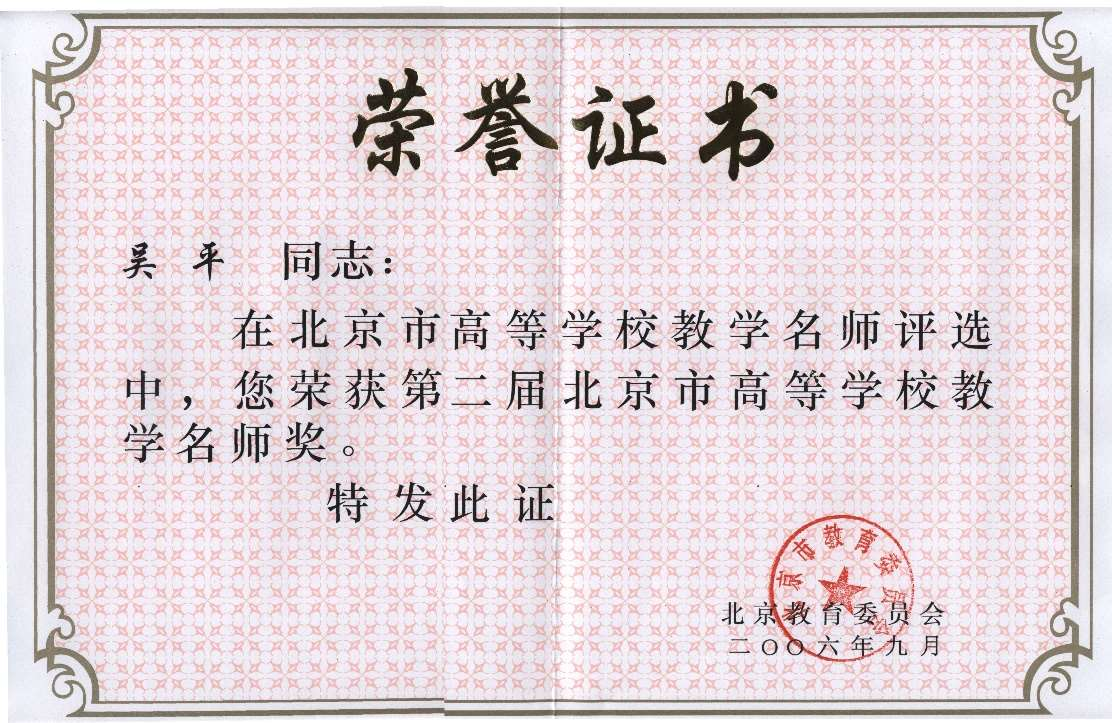 荣誉证书
吴平 同志：
在北京市高等学校教学名师评选
中，您荣获第二届北京市高等学校教
学名师奖。
特发此证
北京市教育委员会
北京教育委员会
二〇〇六年九月